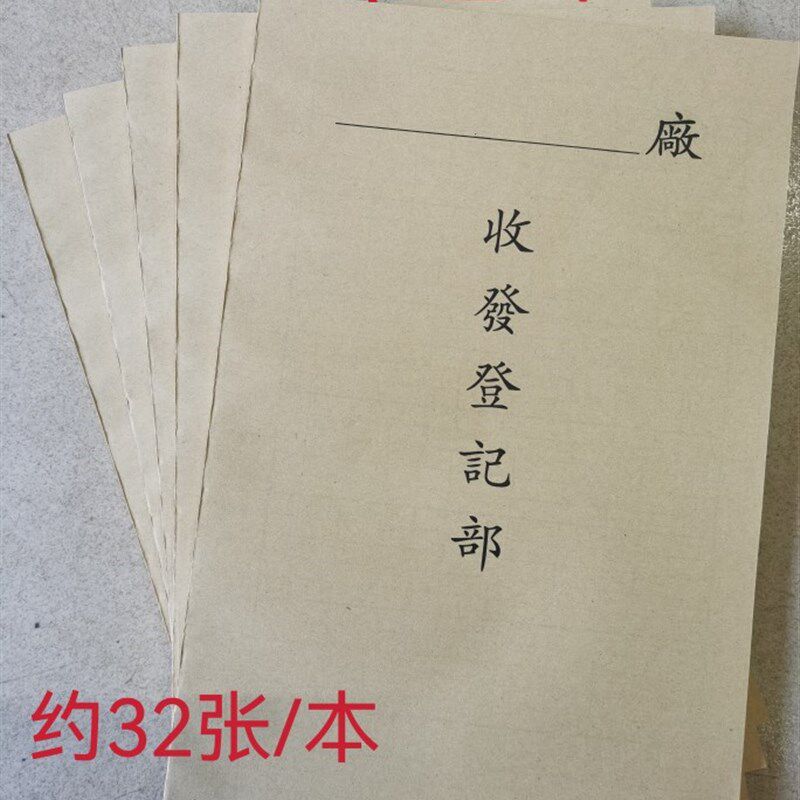 廠
收發登記部
约32张/本